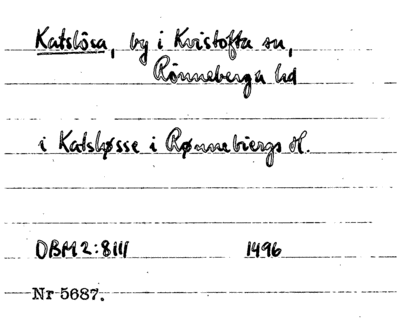 Katslösa, by i Kvistofta sn,
Rönneberga hd
i Katsløsse i Rønnebiergs H.
DBM 2:8111 1496
Nr 5687.